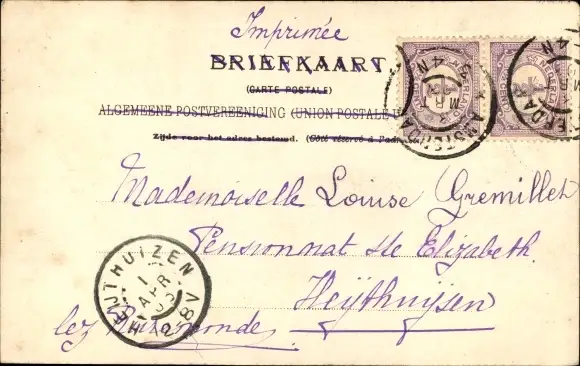 Imprimée
BRIEFKAART
(CARTE POSTALE)
ALGEMEENE POSTVEREENIGING (UNION POSTALE
Zijde voor het adres bestemd. (Côté réservé à l'adr
AMSTERDAM
4N
Mademoiselle Louise Gremillet
Pensionnat Ste Elizabeth
Heÿthuÿsen
lez Ruremonde
HEIJTHUIZEN
1 APR 03
8V